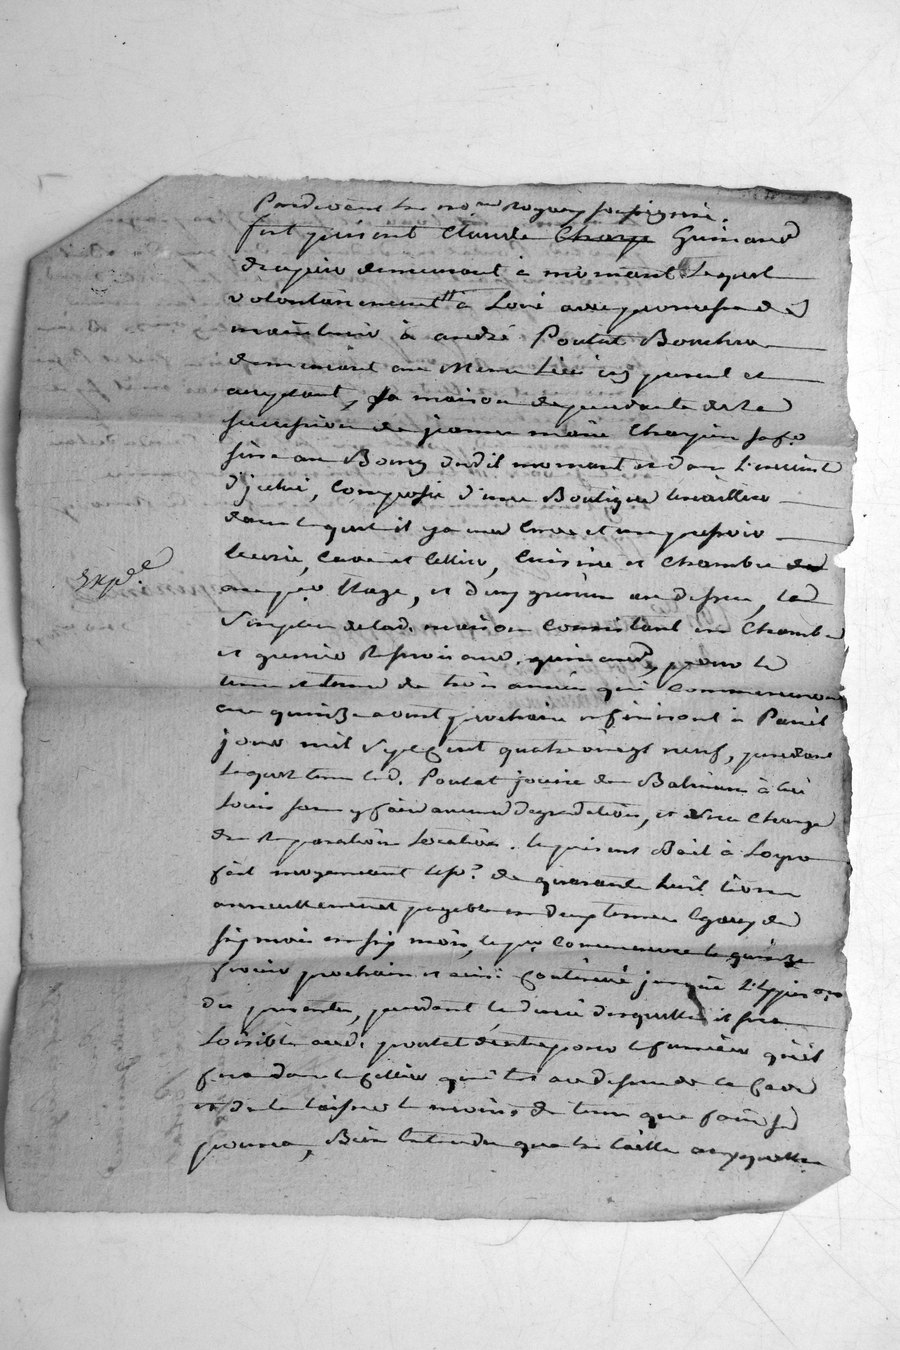 Pardevant les no.res Royaux soussignés.
fut présent Claude Charge Guinand
drapier demeurant à mornant Lequel
volontairement a Loué avec promesse de
maintenir à andré Poulat Boucher
demeurant au Meme Lieu icy present et
acceptant, la maison dependante de la
succession de jeanne marie Charpin sa fe
size au Bourg dudit mornant et dans L'enceint
d'jcelui, Composée d'une Boutique
dans lequel il y a une Cuve et un pressoir
Ecurie, Cave et Cellier, Cuisine et Chambre
au per Etage, et d'un grenier au dessus, le
surplus de lad. maison Consistant en Chambre
et grenier Reservés aud. guinand, pour le
tems et terme de trois années qui Commenceron
au quinze aout prochain et finiront à Pareil
jour mil sept cent quatre vingt neuf, pendant
Lequel tems led. Poulat jouira du Batiment à lui
Loué sans y faire aucune degradation, et sera Chargé
des Reparations Locatives. Le present Bail à Loyer
fait moyennant le p? de quarante huit livres
annuellement payable en deux termes Egaux de
six mois en six mois, le per Commencera le quinze
fevrier prochain et ainsi Continué jusqu'à L'Expiraon
des presentes, pendant la durée desquelles il sera
Loisible aud. poulat d'entreposer le fumier qu'il
fera dans le Cellier qui est au dessus de la Cave
et de le laisser le moins de tems que faire se
pourra, Bien Entendu que les tailles auxquelles
Expdé